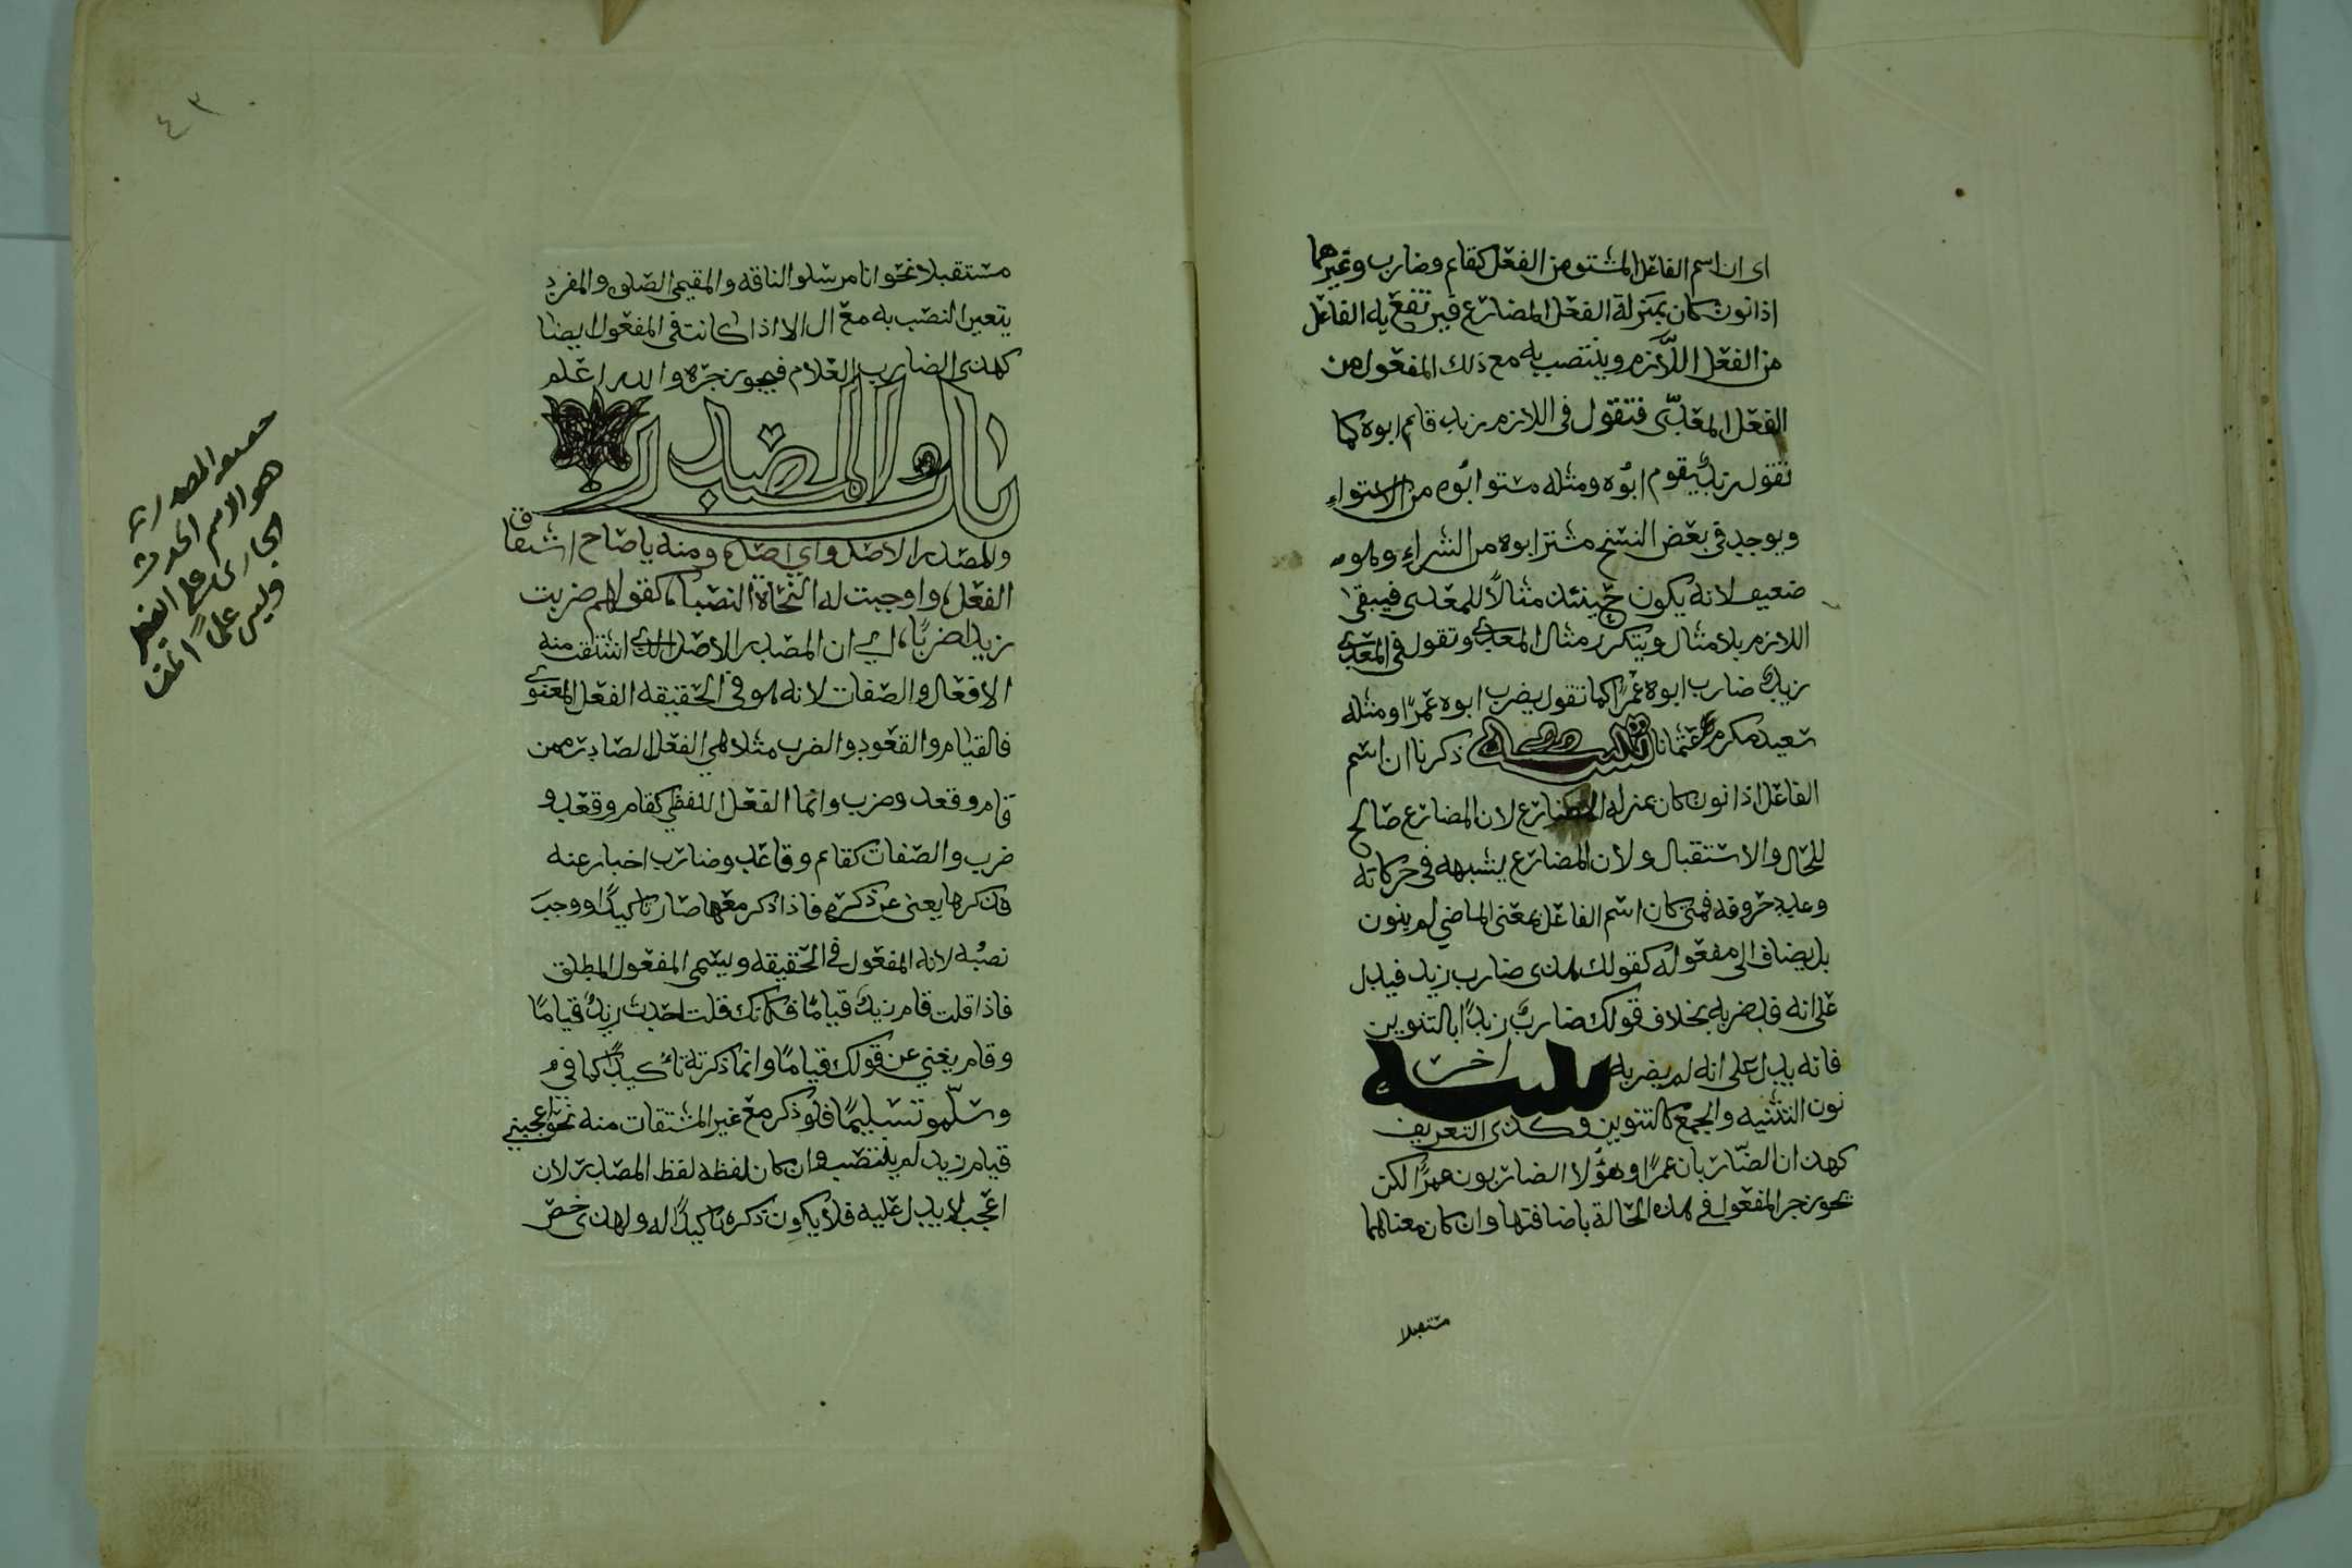 اى ان اسم الفاعل المشتق من الفعل كقايم وضارب وغيرهما
اذا نون كان بمنزلة الفعل المضارع فيرتفع به الفاعل
من الفعل اللازم وينتصب به مع ذلك المفعول من
الفعل المعدّى فتقول فى اللازم زيد قايم ابوه كما
تقول زيد يقوم ابوه ومثله مستو ابوه من الاستواء
ويوجد فى بعض النسخ مشتر ابوه من الشراء وهو
ضعيف لانه يكون حينئذ مثالاً للمعدى فيبقى
اللازم بلا مثال ويتكرر مثال المعدى وتقول فى المعدى
زيد ضارب ابوه عمرًا كما تقول يضرب ابوه عمرًا ومثله
سعيد مكرم عثمانا تنبيه ذكرنا ان اسم
الفاعل اذا نون كان بمنزله المضارع لان المضارع صالح
للحال والاستقبال ولان المضارع يشبهه فى حركاته
وعدد حروفه فمتى كان اسم الفاعل بمعنى الماضي لم ينون
بل يضاف الى مفعوله كقولك هذى ضارب زيد فيدل
على انه قد ضربه بخلاف قولك ضاربٌ زيدًا بالتنوين
فانه يدل على انه لم يضربه تنبيه اخر
نون التثنيه والجمع كالتنوين وكذى التعريف
كهذان الضاربان عمرًا وهؤلا الضاربون عمرًا لكن
يجوز جر المفعول فى هذه الحالة باضافتها وان كان معناهما
مستقبلا
٤٣
مستقبلا نحو انا مرسلو الناقه والمقيمى الصلوه والمفرد
يتعين النصب به مع ال الا اذا كانت فى المفعول ايضا
كهذى الضارب الغلام فيجوز جره والله اعلم
باب المصدر
والمصدر الاصل واي اصل ومنه يا صاح اشتقاق
الفعل واوجبت له النحاة النصبا كقولهم ضربت
زيدا ضربًا اي ان المصدر الاصل الذى اشتقت منه
الافعال والصفات لانه هو فى الحقيقه الفعل المعنوى
فالقيام والقعود والضرب مثلا هي الفعل الصادر ممن
قام وقعد وضرب وانما الفعل اللفظي كقام وقعد و
ضرب والصفات كقايم وقاعد وضارب اخبار عنه
فذكرها يغنى عن ذكره فاذا ذكر معها صار تاكيدًا ووجب
نصبُه لانه المفعول فى الحقيقه ويسمى المفعول المطلق
فاذا قلت قام زيدٌ قيامًا فكانك قلت احدث زيدٌ قيامًا
وقام يغني عن قولك قيامًا وانما ذكرته تاكيدًا كما في
وسلّمو تسليمًا فلو ذكر مع غير المشتقات منه نحو اعجبني
قيام زيد لم ينتصب وان كان لفظه لفظ المصدر لان
اعجب لا يدل عليه فلا يكون ذكره تاكيدًا له ولهذى خص
المصدر
هو الاسم الحدث
الجارى على الفعل
وليس علمًا